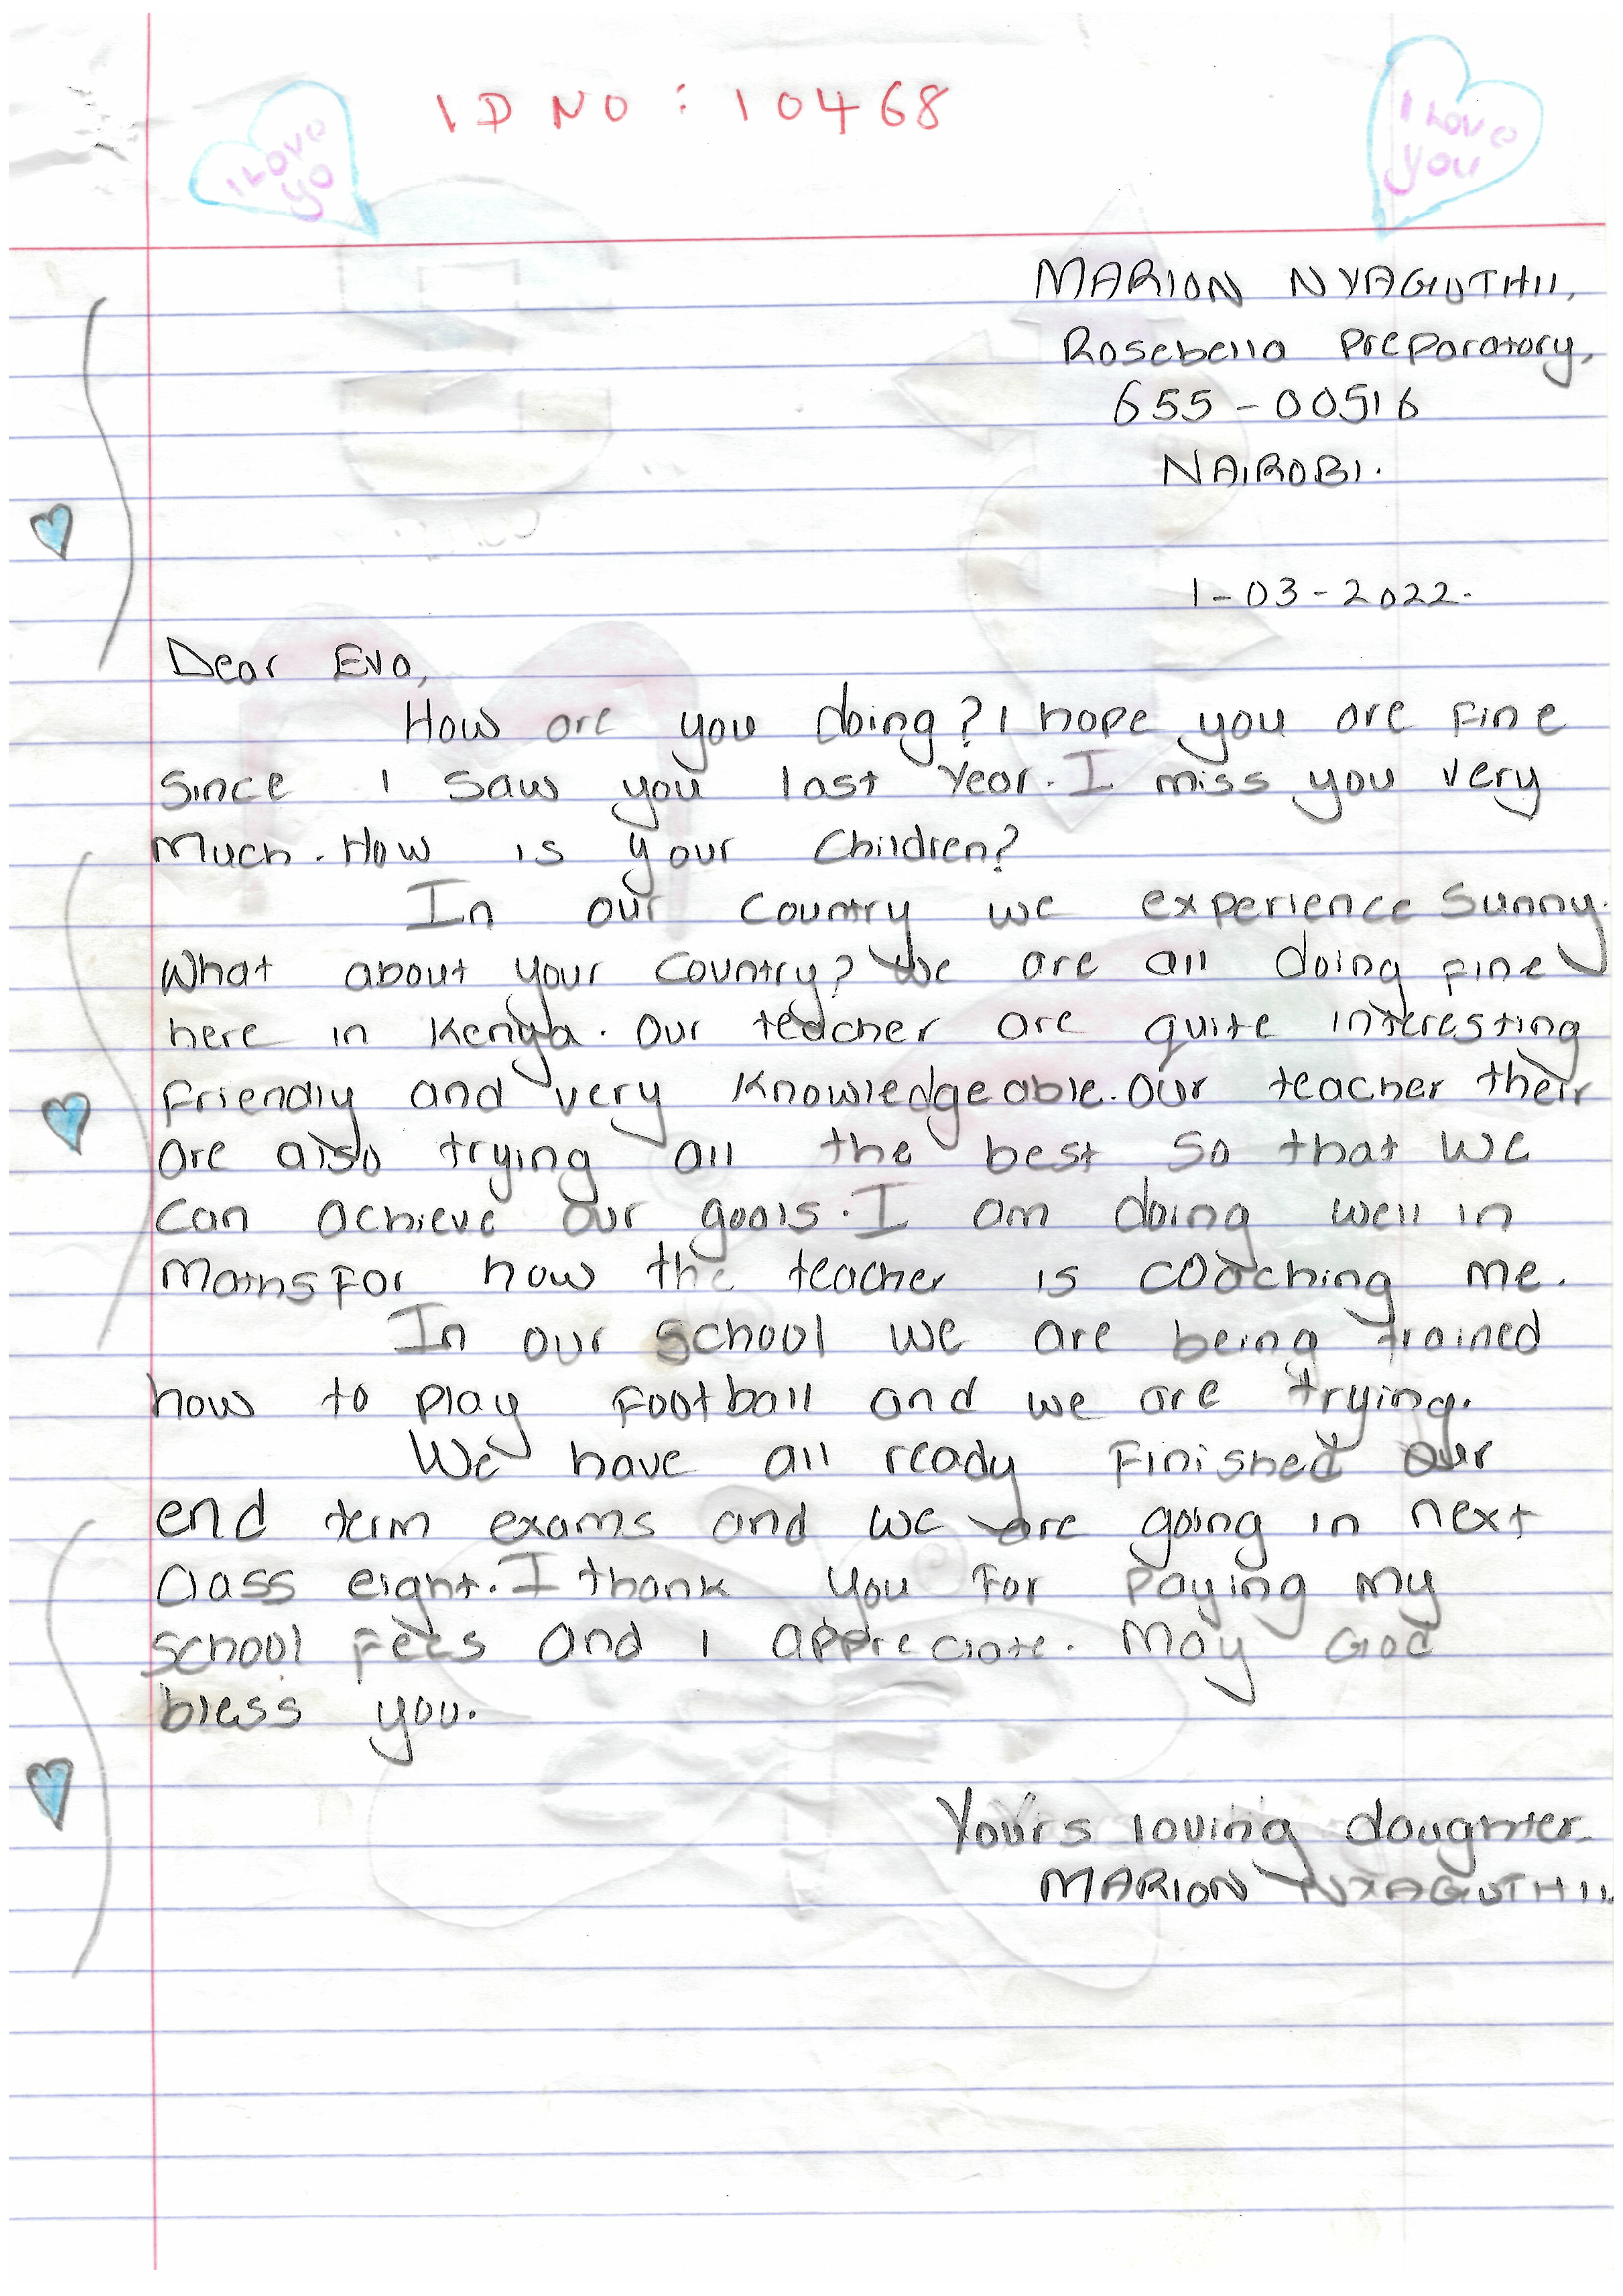 ID NO : 10468
I LOVE
yo
I Love
you
MARION NYAGUTHII,
Rosebella Preparatory,
655 - 00516
NAIROBI.
1-03-2022.
Dear Eva,
How are you doing? I hope you are fine
since I saw you last year. I miss you very
Much. How is your Children?
In our Country we experience Sunny.
What about your Country? We are all doing fine
here in Kenya. Our teacher are quite interesting
friendly and very Knowledgeable. Our teacher their
are also trying all the best so that we
can achieve our goals. I am doing well in
for how the teacher is coaching me.
In our school we are being trained
how to play Football and we are trying.
We have all ready Finished our
end term exams and we are going in next
Class eight. I thank you For Paying my
school Fees and I appreciate. May God
bless you.
Yours loving daughter.
MARION NYAGUTHII.